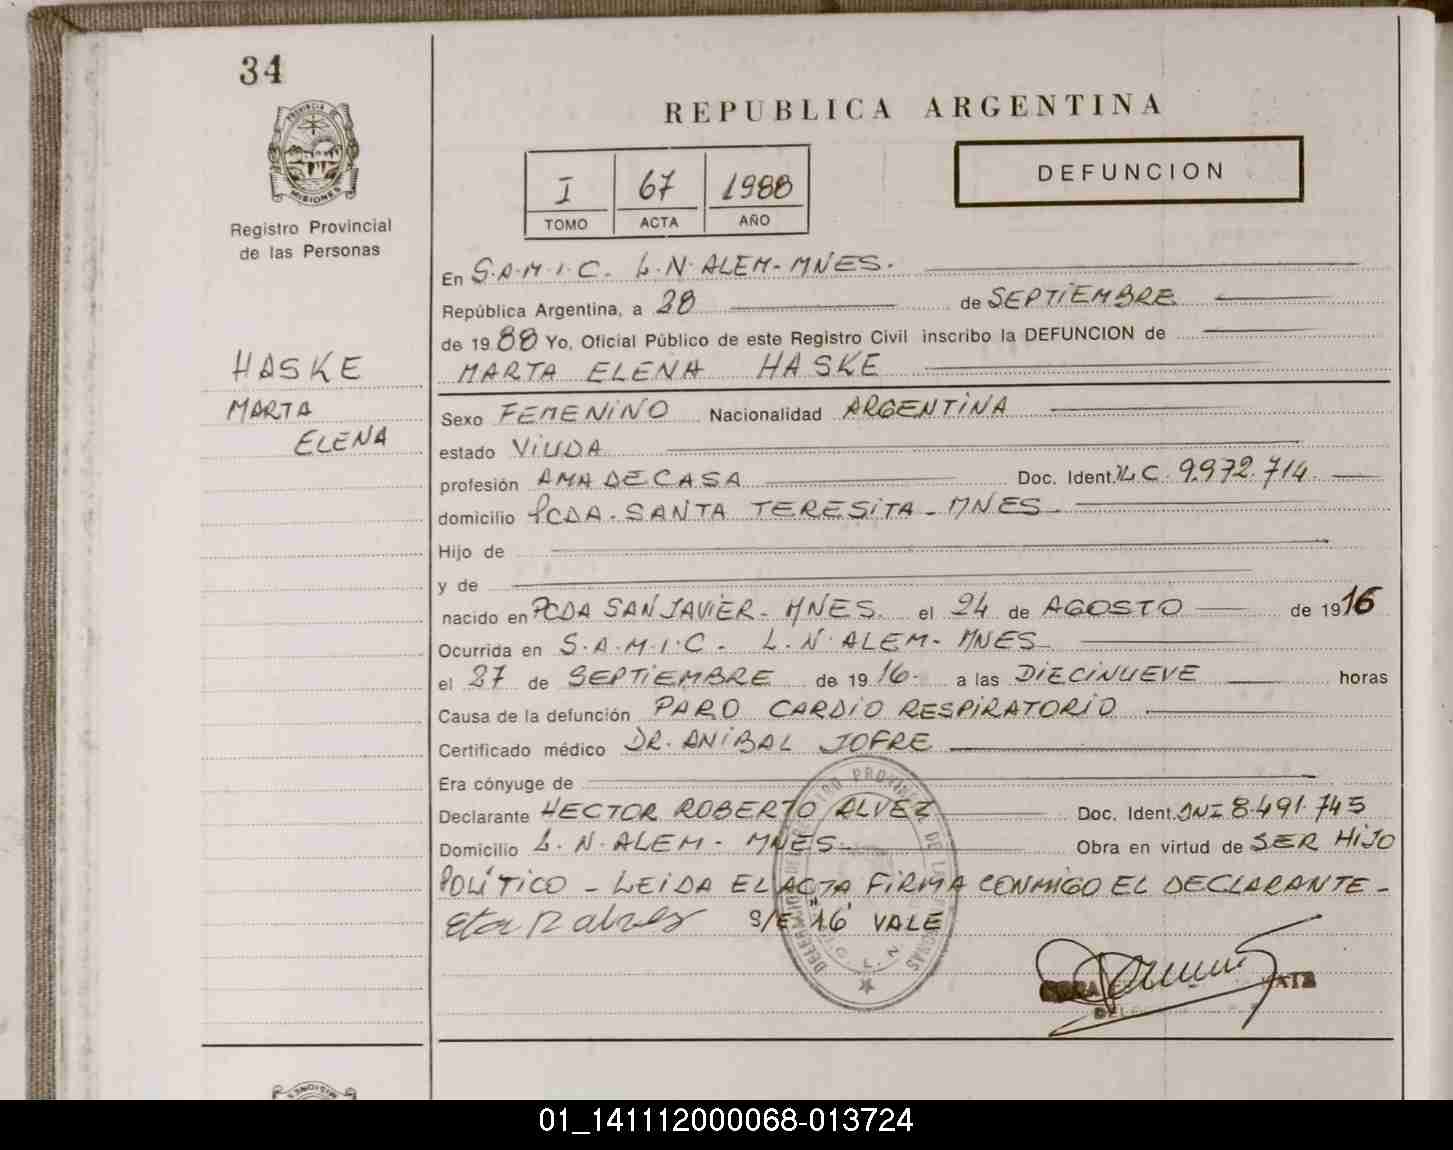 34
REPUBLICA ARGENTINA
PROVINCIA DE
MISIONES
Registro Provincial
de las Personas
I 67 1988
TOMO ACTA AÑO
DEFUNCION
En S.A.M.I.C. L.N. ALEM-MNES.
República Argentina, a 28 de SEPTIEMBRE
de 19 88 Yo, Oficial Público de este Registro Civil inscribo la DEFUNCION de
MARTA ELENA HASKE
HASKE
MARTA
ELENA
Sexo FEMENINO Nacionalidad ARGENTINA
estado VIUDA
profesión AMA DE CASA Doc. Ident. L.C. 9.972.714.
domicilio PCDA. SANTA TERESITA - MNES
Hijo de
y de
nacido en PCDA SAN JAVIER - MNES. el 24 de AGOSTO de 19 16
Ocurrida en S.A.M.I.C. L.N. ALEM - MNES
el 27 de SEPTIEMBRE de 19 16. a las DIECINUEVE horas
Causa de la defunción PARO CARDIO RESPIRATORIO
Certificado médico DR. ANIBAL JOFRE
Era cónyuge de
Declarante HECTOR ROBERTO ALVEZ Doc. Ident. DNI 8.491.745
Domicilio L.N. ALEM - MNES. Obra en virtud de SER HIJO
POLÍTICO - LEIDA EL ACTA FIRMA CONMIGO EL DECLARANTE -
S/E "16" VALE
MISIONES
01_141112000068-013724